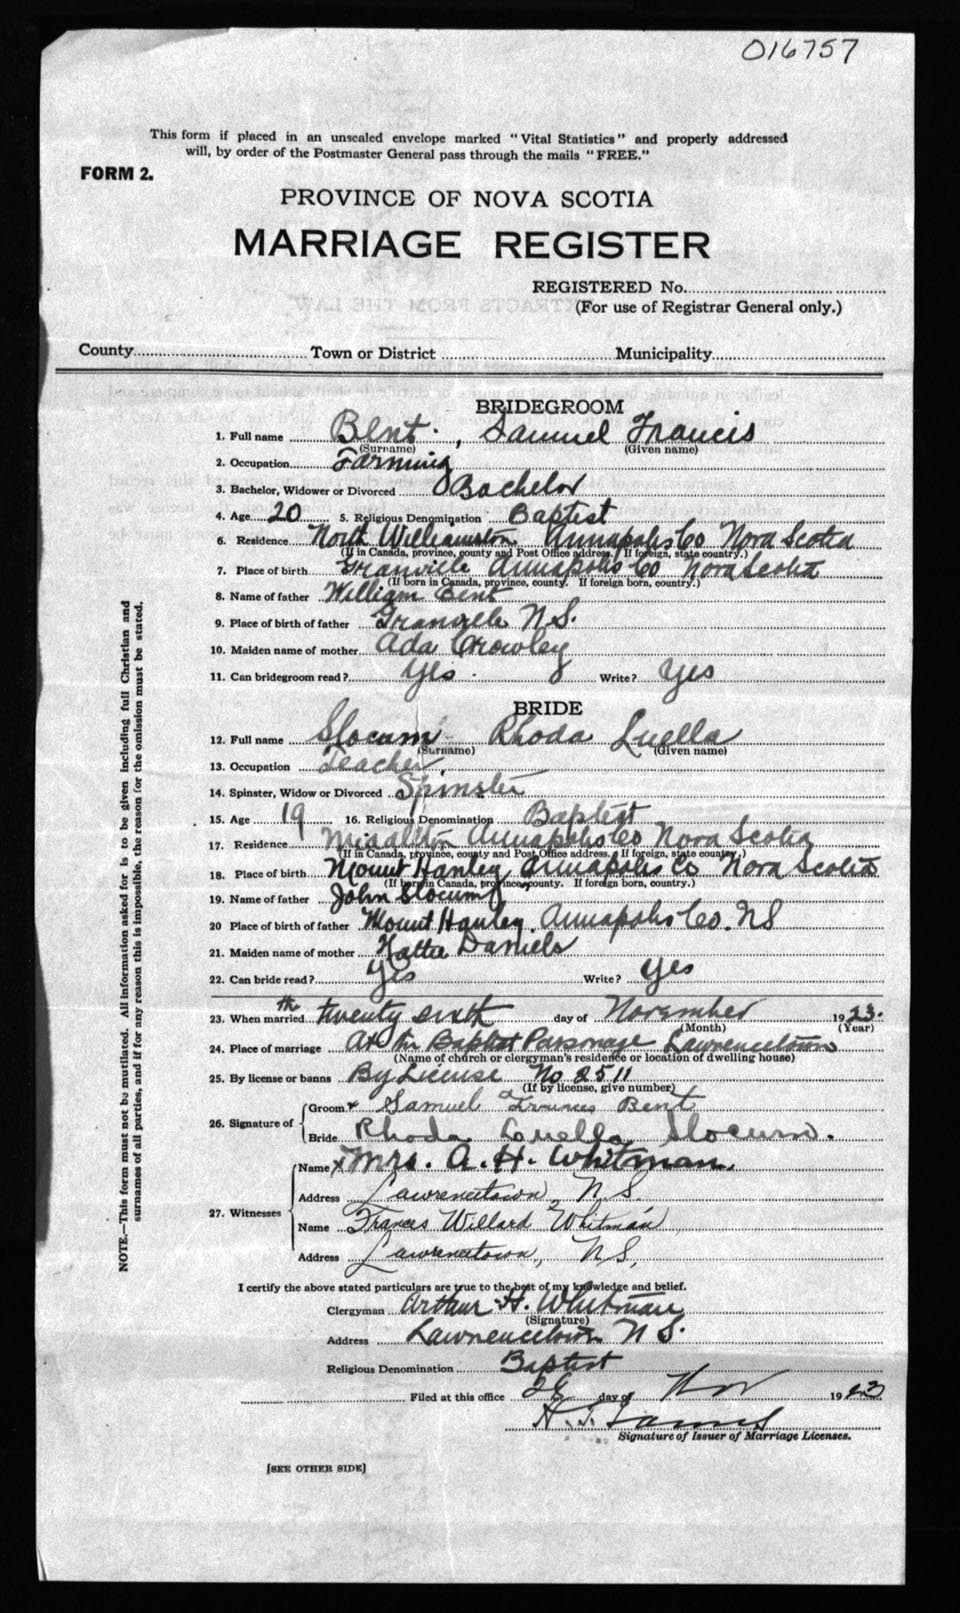 016757
This form if placed in an unsealed envelope marked "Vital Statistics" and properly addressed
will, by order of the Postmaster General pass through the mails "FREE."
FORM 2.
PROVINCE OF NOVA SCOTIA
MARRIAGE REGISTER
REGISTERED No.
(For use of Registrar General only.)
County Town or District Municipality
BRIDEGROOM
1. Full name Bent, Samuel Francis
(Surname) (Given name)
2. Occupation Farming
3. Bachelor, Widower or Divorced Bachelor
4. Age 20 5. Religious Denomination Baptist
6. Residence North Williamston Annapolis Co Nova Scotia
(If in Canada, province, county and Post Office address. If foreign, state country.)
7. Place of birth Granville Annapolis Co Nova Scotia
(If born in Canada, province, county. If foreign born, country.)
8. Name of father William Bent
9. Place of birth of father Granville N.S.
10. Maiden name of mother Ada Crowley
11. Can bridegroom read? Yes. Write? Yes
BRIDE
12. Full name Slocum Rhoda Luella
(Surname) (Given name)
13. Occupation Teacher.
14. Spinster, Widow or Divorced Spinster
15. Age 19 16. Religious Denomination Baptist
17. Residence Middleton Annapolis Co Nova Scotia
(If in Canada, province, county and Post Office address. If foreign, state country.)
18. Place of birth Mount Hanley Annapolis Co Nova Scotia
(If born in Canada, province, county. If foreign born, country.)
19. Name of father John Slocum
20 Place of birth of father Mount Hanley. Annapolis Co. NS
21. Maiden name of mother Hattie Daniels
22. Can bride read? Yes Write? Yes
23. When married twenty sixth th day of November 1923.
(Month) (Year)
24. Place of marriage At the Baptist Parsonage Lawrencetown
(Name of church or clergyman's residence or location of dwelling house)
25. By license or banns By License No 2511
(If by license, give number)
26. Signature of Groom x Samuel Frances Bent
Bride Rhoda Louella Slocum.
27. Witnesses Name x Mrs. A. H. Whitman.
Address Lawrencetown, N.S.
Name Frances Willard Whitman
Address Lawrencetown, N.S.
I certify the above stated particulars are true to the best of my knowledge and belief.
Clergyman Arthur H. Whitman
(Signature)
Address Lawrencetown N S.
Religious Denomination Baptist
Filed at this office day of Nov 1923
Signature of Issuer of Marriage Licenses.
[SEE OTHER SIDE]
NOTE.—This form must not be mutilated. All information asked for is to be given including full Christian and
surnames of all parties, and if for any reason this is impossible, the reason for the omission must be stated.